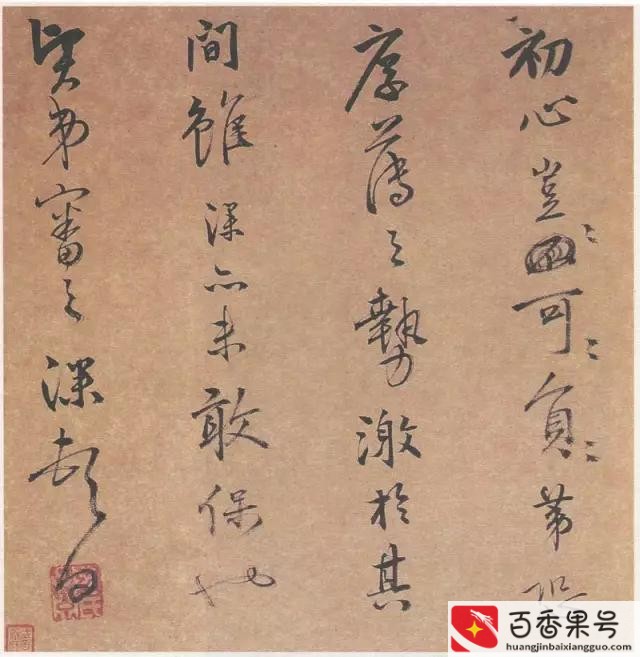 初心豈々可々負々第恐
厚薄之勢激於其
間雖深亦未敢保也
賢弟審之深頓白
百香果号
huangjinbaixiangguo.com